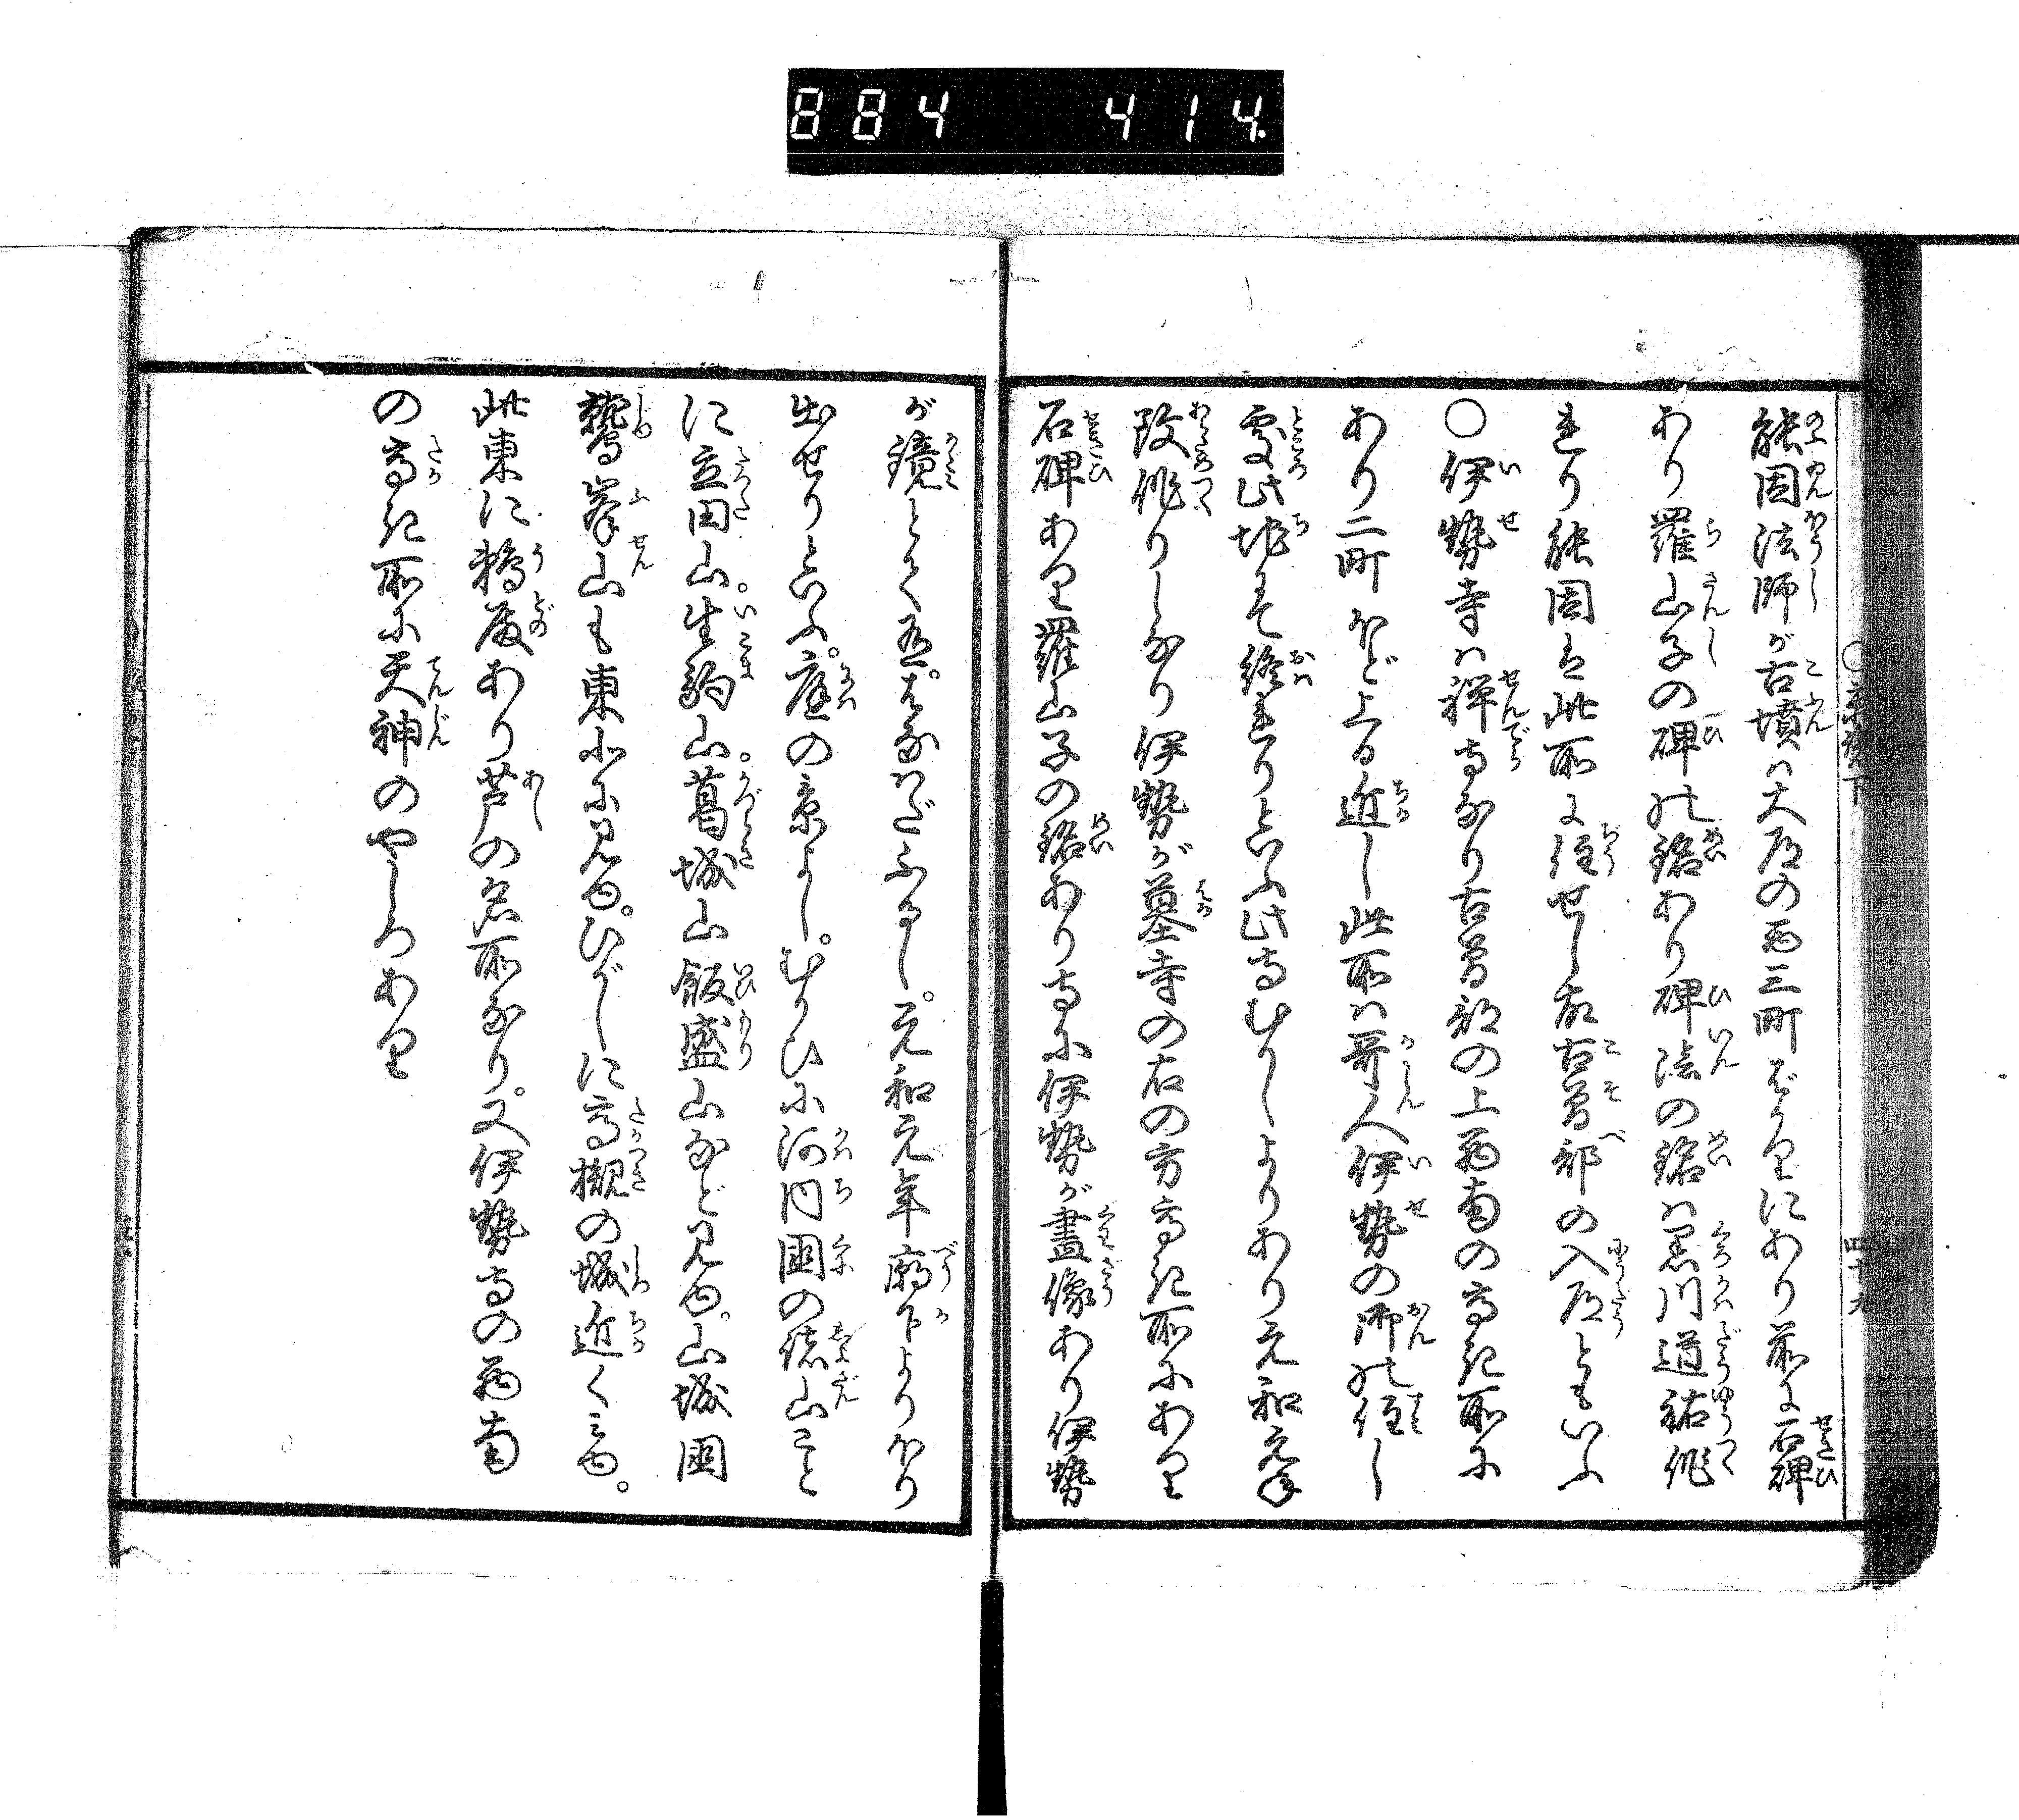 884 414.
能因法師が古墳ハ大道の西三町ばかりにあり前に石碑
あり羅山子の碑の銘あり碑陰の銘ハ黒川道祐作
れり能因は此所に住せし故古曽部の入道ともいふ
○伊勢寺ハ禅寺なり古曽部の上西南の高き所に
あり二町ほど上る近し此所ハ哥人伊勢の御の住し
處此地にて終れりといふ此寺むかしよりあり元和元年
改作りしなり伊勢が墓寺の右の方高き所にあり
石碑あり羅山子の銘あり寺に伊勢が畫像あり伊勢
が鏡とて有。はなハだふるし。元和元年廟下よりほり
出せりといふ。庭の景よし。むかひに河内国の諸山こと
に立田山。生駒山。葛城山飯盛山など見ゆ。山城国
鷲峯山も東北に見ゆ。ひがしに高槻の城近くミゆ。
此東に鵜殿あり芦の名所なり。又伊勢寺の西南
の高き所に天神のやしろあり